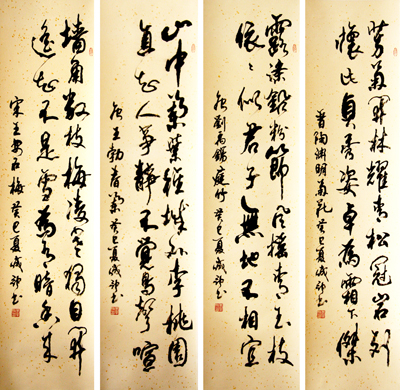 芳菊開林耀青松冠岩列
懷此貞秀姿卓為霜下傑
晉陶淵明菊花癸巳夏
露滌鉛粉節風搖青玉枝
依々似君子無地不相宜
唐劉禹錫庭竹癸巳夏
山中蘭葉徑城外李桃園
直知人事靜不覺鳥聲喧
唐王勃春癸巳夏
墻角數枝梅凌寒獨自開
遙知不是雪為有暗香来
宋王安石梅癸巳夏